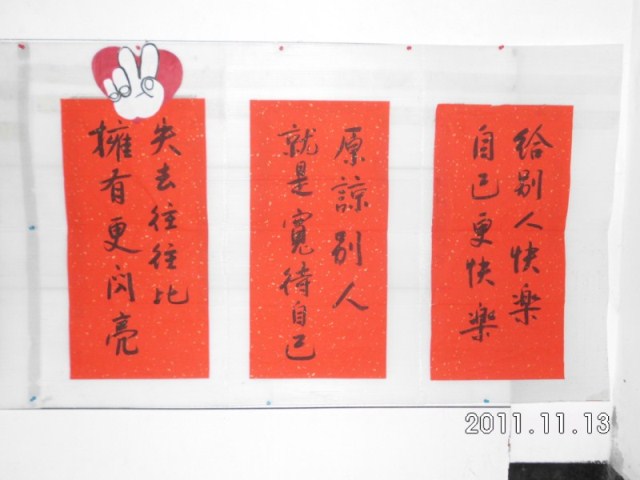 給別人快樂
自己更快樂
原諒別人
就是寬待自己
失去往往比
擁有更閃亮
2011.11.13